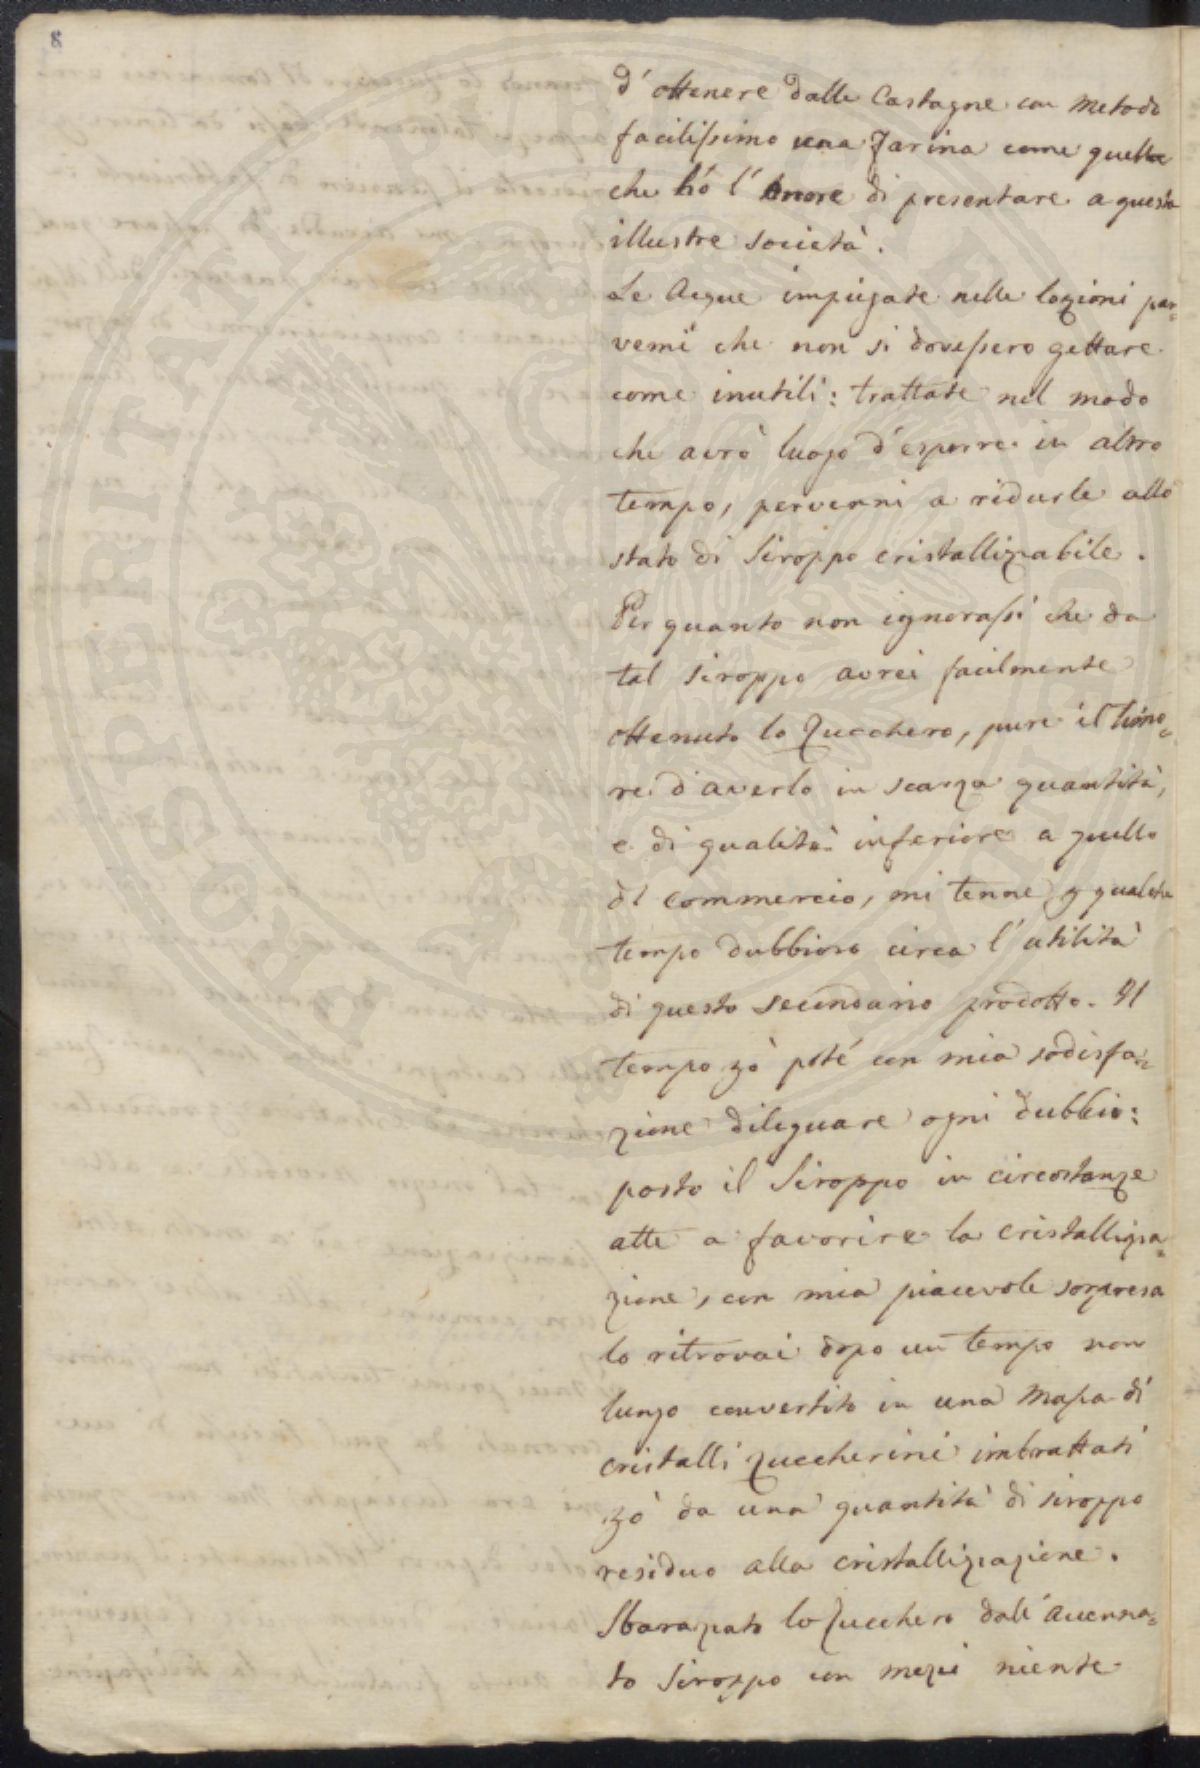 8
d'ottenere dalle Castagne con metodo
facilissimo una Farina come quella
che hó l'onore di presentare a questa
illustre società.
Le Acque impiegate nelle lozioni par=
vemi che non si dovessero gettare
come inutili: trattate nel modo
che avrò luogo d'esporre in altro
tempo, pervenni a ridurle allo
stato di Siroppo cristallizzabile.
Per quanto non ignorassi che da
tal siroppo avrei facilmente
ottenuto lo Zucchero, pure il timo=
re d'averlo in scarza quantità,
e di qualità inferiore a quello
di commercio, mi tenne p qualche
tempo dubbioso circa l'utilità
di questo secondario prodotto. Il
tempo zò poté con mia sodisfa=
zione dileguare ogni dubbio:
posto il Siroppo in circostanze
atte a favorire la cristallizza=
zione, con mia piacevole sorpresa
lo ritrovai dopo un tempo non
lungo convertito in una Massa di
cristalli zuccherini imbrattati
zò da una quantità di siroppo
residuo alla cristallizzazione.
Sbarazzato lo Zucchero dall'accenna=
to Siroppo con mezzi niente
PROSPERITATI PUBLICAE AUGENDAE